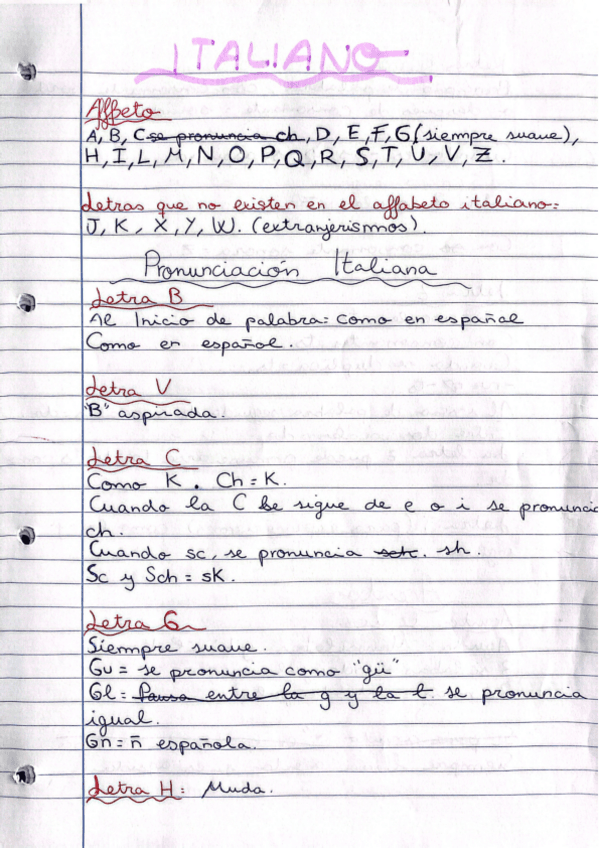 ITALIANO
Affbeto
A, B, C se pronuncia ch, D, E, F, G (siempre suave),
H, I, L, M, N, O, P, Q, R, S, T, U, V, Z.
Letras que no existen en el alfabeto italiano:
J, K, X, Y, W. (extranjerismos).
Pronunciación Italiana
Letra B
Al Inicio de palabra: como en español
Como en español.
Letra V
"B" aspirada.
Letra C
Como K. Ch = K.
Cuando la C le sigue de e o i se pronuncia
ch.
Cuando sc, se pronuncia sch. sh.
Sc y Sch = sK.
Letra G
Siempre suave.
Gu = se pronuncia como "gü"
Gl = Pausa entre la g y la l. se pronuncia
igual.
Gn = ñ española.
Letra H: Muda.